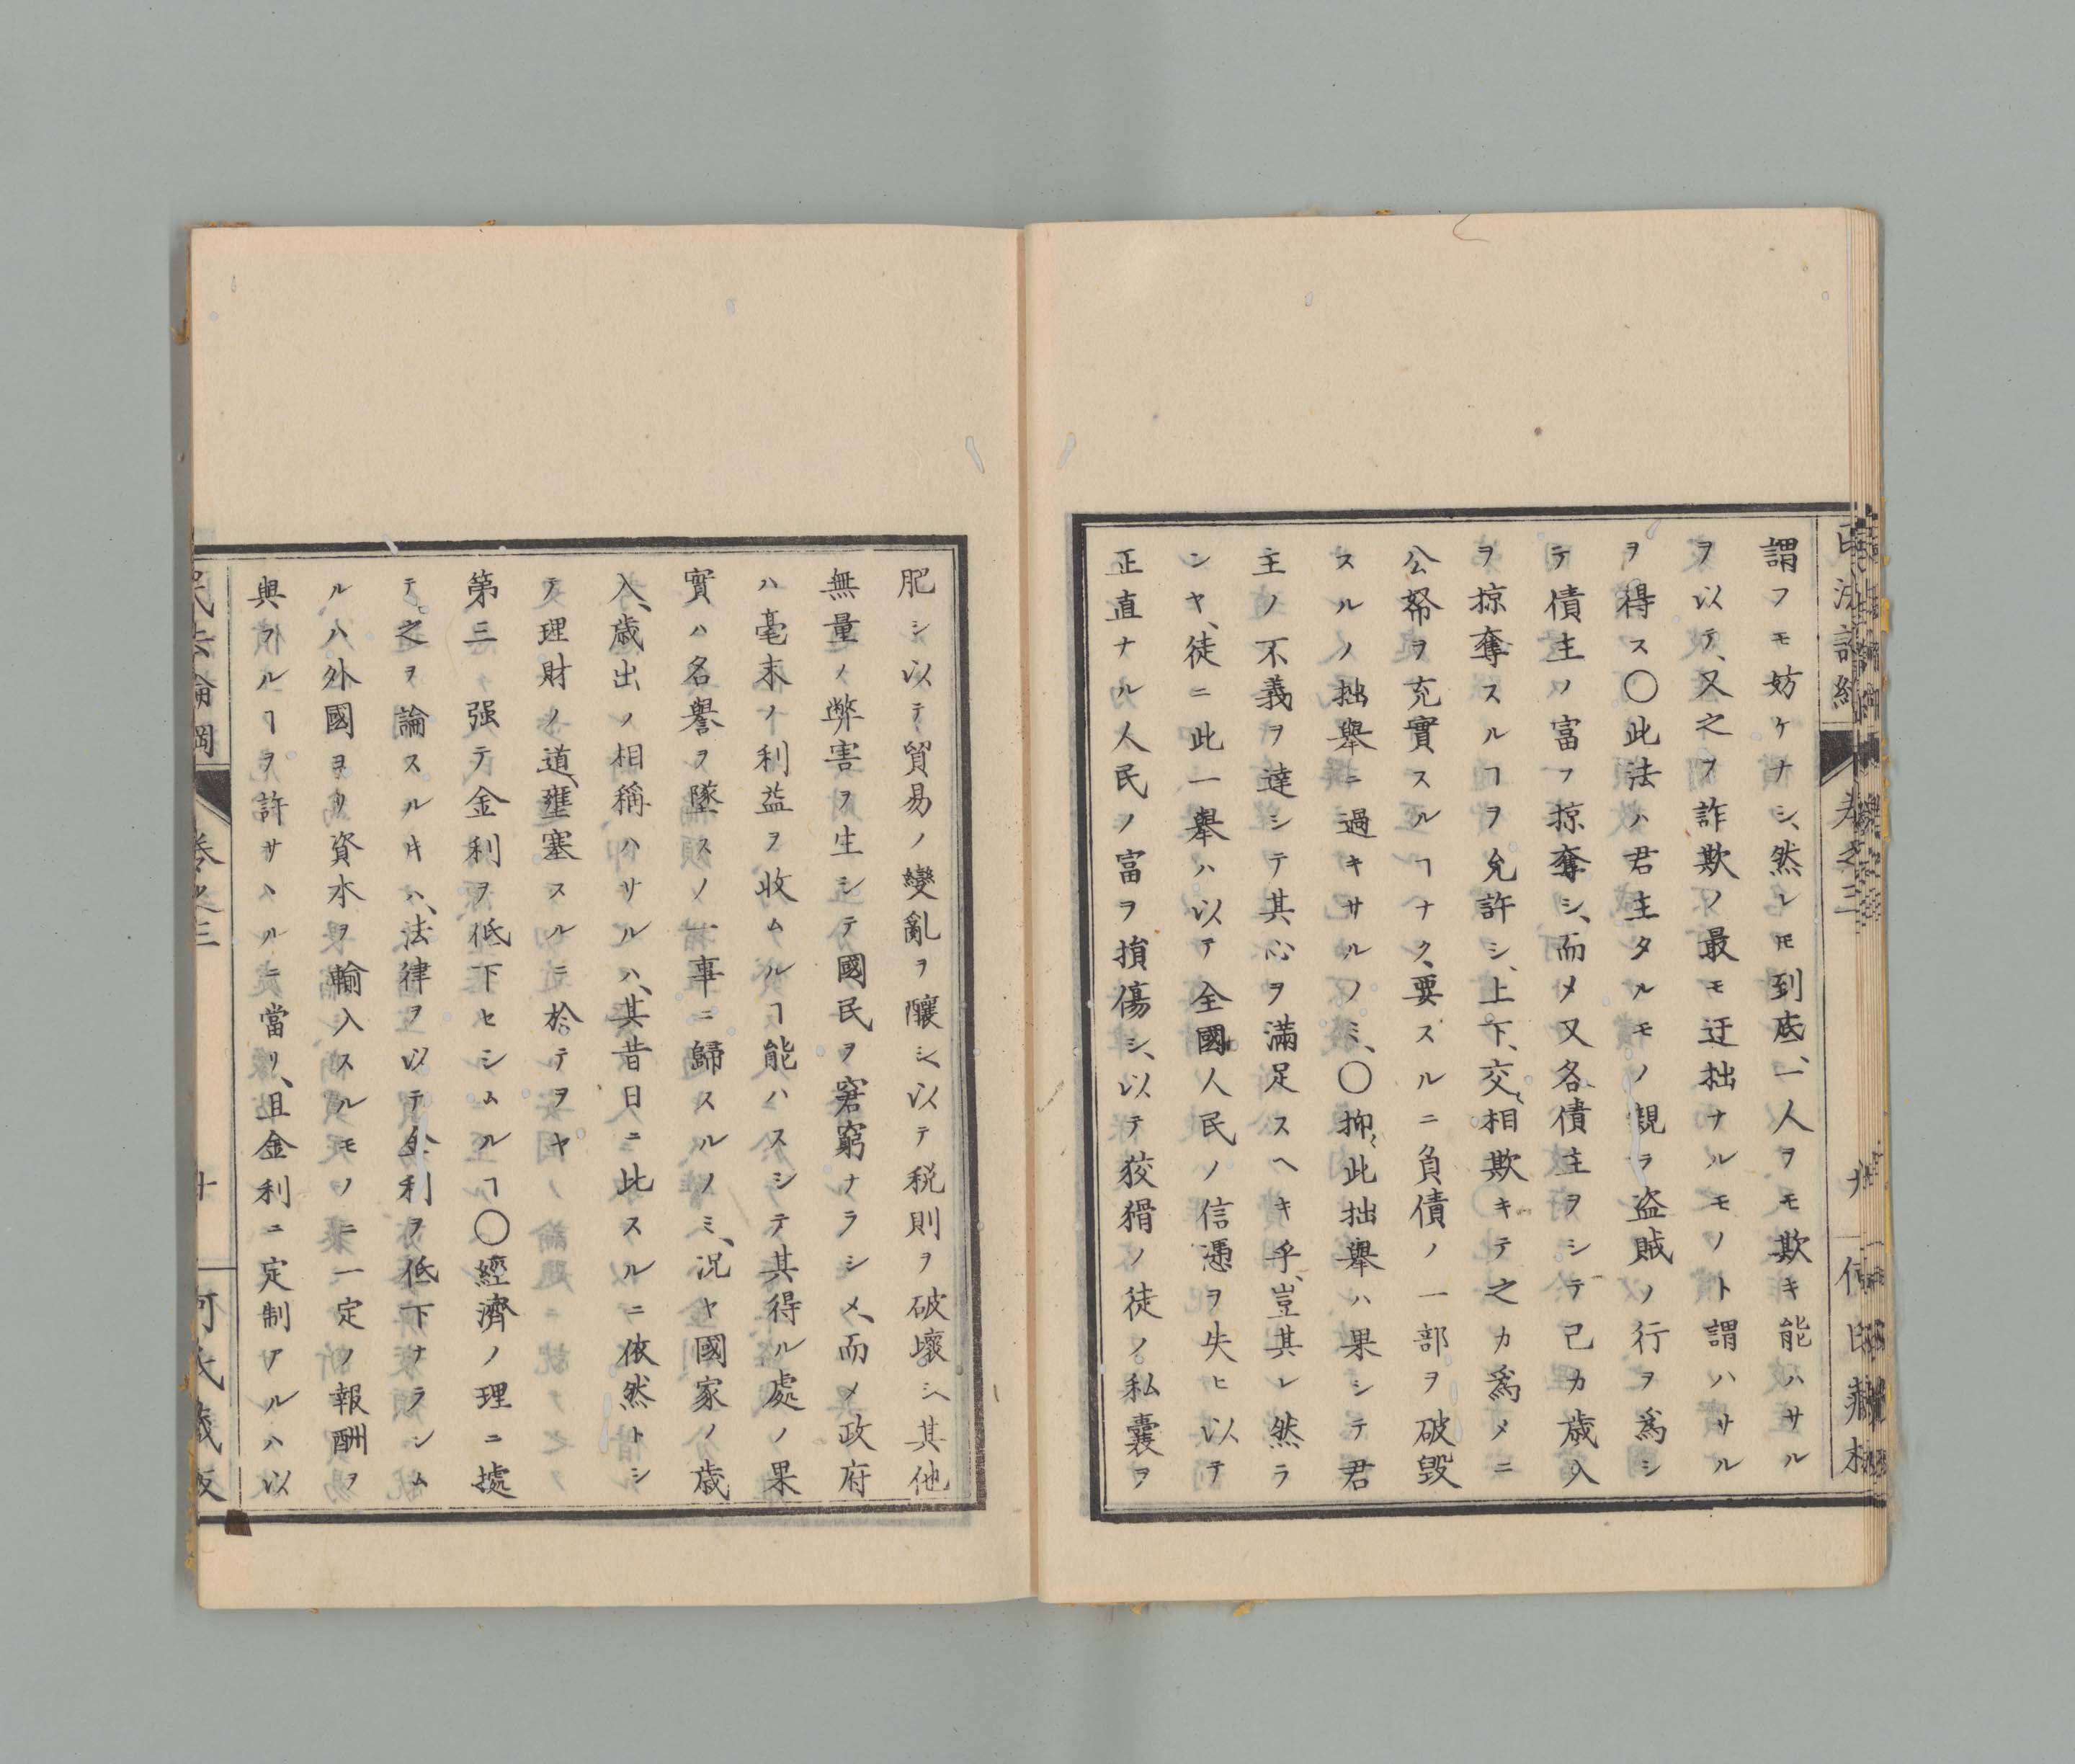 謂フモ妨ケナシ、然レ𪜈到底、一人ヲモ欺キ能ハサル
ヲ以テ、又之ヲ詐欺ノ最モ迂拙ナルモノト謂ハサル
ヲ得ス〇此法ハ君主タルモノ親ラ盜賊ノ行ヲ爲シ
テ債主ノ富ヲ掠奪シ、而メ又各債主ヲシテ己カ歳入
ヲ掠奪スルヿヲ允許シ、上下、交〻相欺キテ之カ爲メニ
公帑ヲ充實スルヿナク、要スルニ負債ノ一部ヲ破毀
スルノ拙舉ニ過キサルノミ、〇抑〻此拙舉ハ果シテ君
主ノ不義ヲ達シテ其心ヲ滿足スヘキ乎、豈其レ然ラ
ンヤ、徒ニ此一舉ハ以テ全國人民ノ信憑ヲ失ヒ以テ
正直ナル人民ノ富ヲ損傷シ、以テ狡猾ノ徒ノ私囊ヲ
肥シ以テ貿易ノ變亂ヲ釀シ、以テ税則ヲ破壞シ、其他
無量ノ弊害ヲ生シテ國民ヲ窘窮ナラシメ、而メ政府
ハ毫末ノ利益ヲ收ムルヿ能ハスシテ其得ル處ノ果
實ハ名譽ヲ墜スノ一事ニ歸スルノミ、況ヤ國家ノ歳
入、歳出ノ相稱ハサルハ、其昔日ニ此スルニ依然トシ
テ理財ノ道、壅塞スルニ於テヲヤ
第三 强テ金利ヲ低下セシムルヿ〇經濟ノ理ニ據
テ之ヲ論スル𪜈ハ、法律ヲ以テ金利ヲ低下ナラシム
ルハ外國ヨリ資本ヲ輸入スルモノニ一定ノ報酬ヲ
與フルヿヲ許サヽルニ當リ、且金利ニ定制アルハ以
民法論綱 卷之三 十 何氏藏板